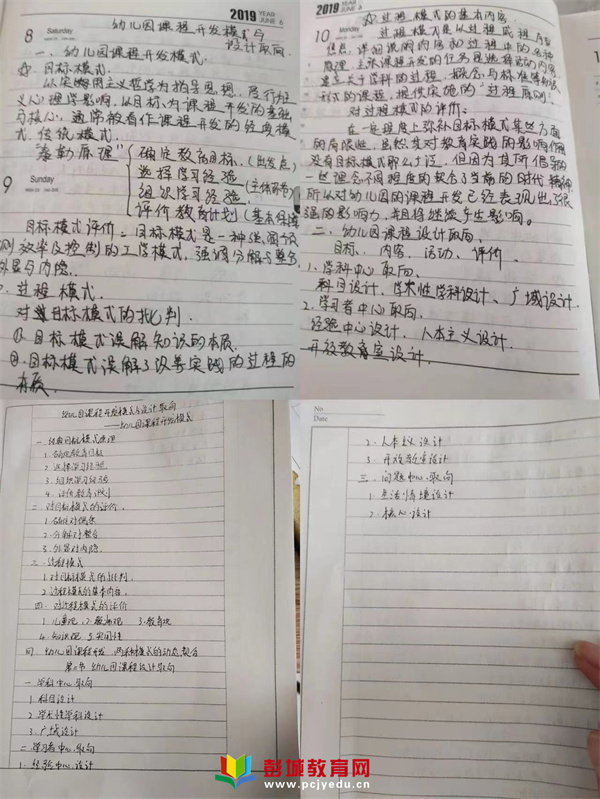 8 Saturday
2019 YEAR
JUNE 6
幼儿园课程开发模式与
设计取向
一、幼儿园课程开发模式.
目标模式.
以实用主义哲学为指导思想,受行为主
义心理学影响,以目标为课程开发的基础
与核心,通常被看作课程开发的经典模
式,传统模式.
9 Sunday
"泰勒原理"
确定教育目标.(出发点)
选择学习经验
组织学习经验.(主体部分)
评价教育计划(
目标模式评价:目标模式是一种强调
效率及控制的工学模式,强调分解与整合
外显与内隐.
过程模式.
对目标模式的批判.
①目标模式误解知识的本质.
②目标模式误解了改善实践的过程的
本质.
10 Monday
2019 YEAR
JUNE
过程模式的基本内容.
过程模式是从过程
详细说明内容和过程中的各种
原理.
形式的课程,提供实施的"过程原则".
对过程模式的评价:
在一定程度上弥补目标模式某些方面
的局限性,虽然其对教育实践的影响
没有目标模式那么广泛,但因为其所倡导的
一些理念不同程度的契合了当前的时代精神
所以对幼儿园的课程开发已经表现出了很
强的影响力,并且将继续产生影响。
二、幼儿园课程设计取向.
目标、内容、活动、评价.
1.学科中心取向.
科目设计、学术性学科设计、广域设计
2.学习者中心取向.
经验中心设计、人本主义设计.
开放教育室设计.
幼儿园课程开发模式与设计取向
——幼儿园课程开发模式
一、经典目标模式原理
1.确定教育目标
2.选择学习经验
3.组织学习经验
4.评价教育计划
二.对目标模式的评价.
2.分解对整合
3.外显对内隐.
三、过程模式
1.对目标模式的批判.
2.过程模式的基本内容.
四.对过程模式的评价
1.儿童观.2.教师观 3.教育观
4.知识观 5.实用性
幼儿园课程开发:两种模式的动态整合
第二节 幼儿园课程设计取向
一.学科中心取向
1.科目设计
2.学术性学科设计
3.广域设计
二.学习者中心取向
1.经验中心设计
No.
Date
2.人本主义设计
3.开放教室设计
三.问题中心取向
1.生活情境设计
2.核心设计
彭城教育网
www.pcjyedu.cn